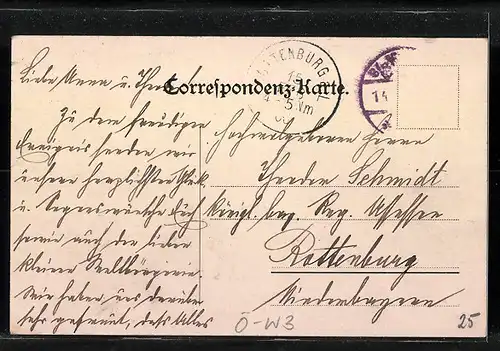 Correspondenz-Karte.
ROTTENBURG
15
4-5 Nm
14
Liebe Anna u. Theodor!
Zu dem freudigen
Ereignis senden wir
unsere herzlichsten Glück-
u. Segenswünsche Euch
sowie auch der lieben
kleinen
Wir haben uns darüber
sehr gefreut, daß Alles
Hochwohlgeboren Herrn
Theodor Schmidt
Königl. bay. Reg. Assessor
Rottenburg
Niederbayern
Ö-W3
25